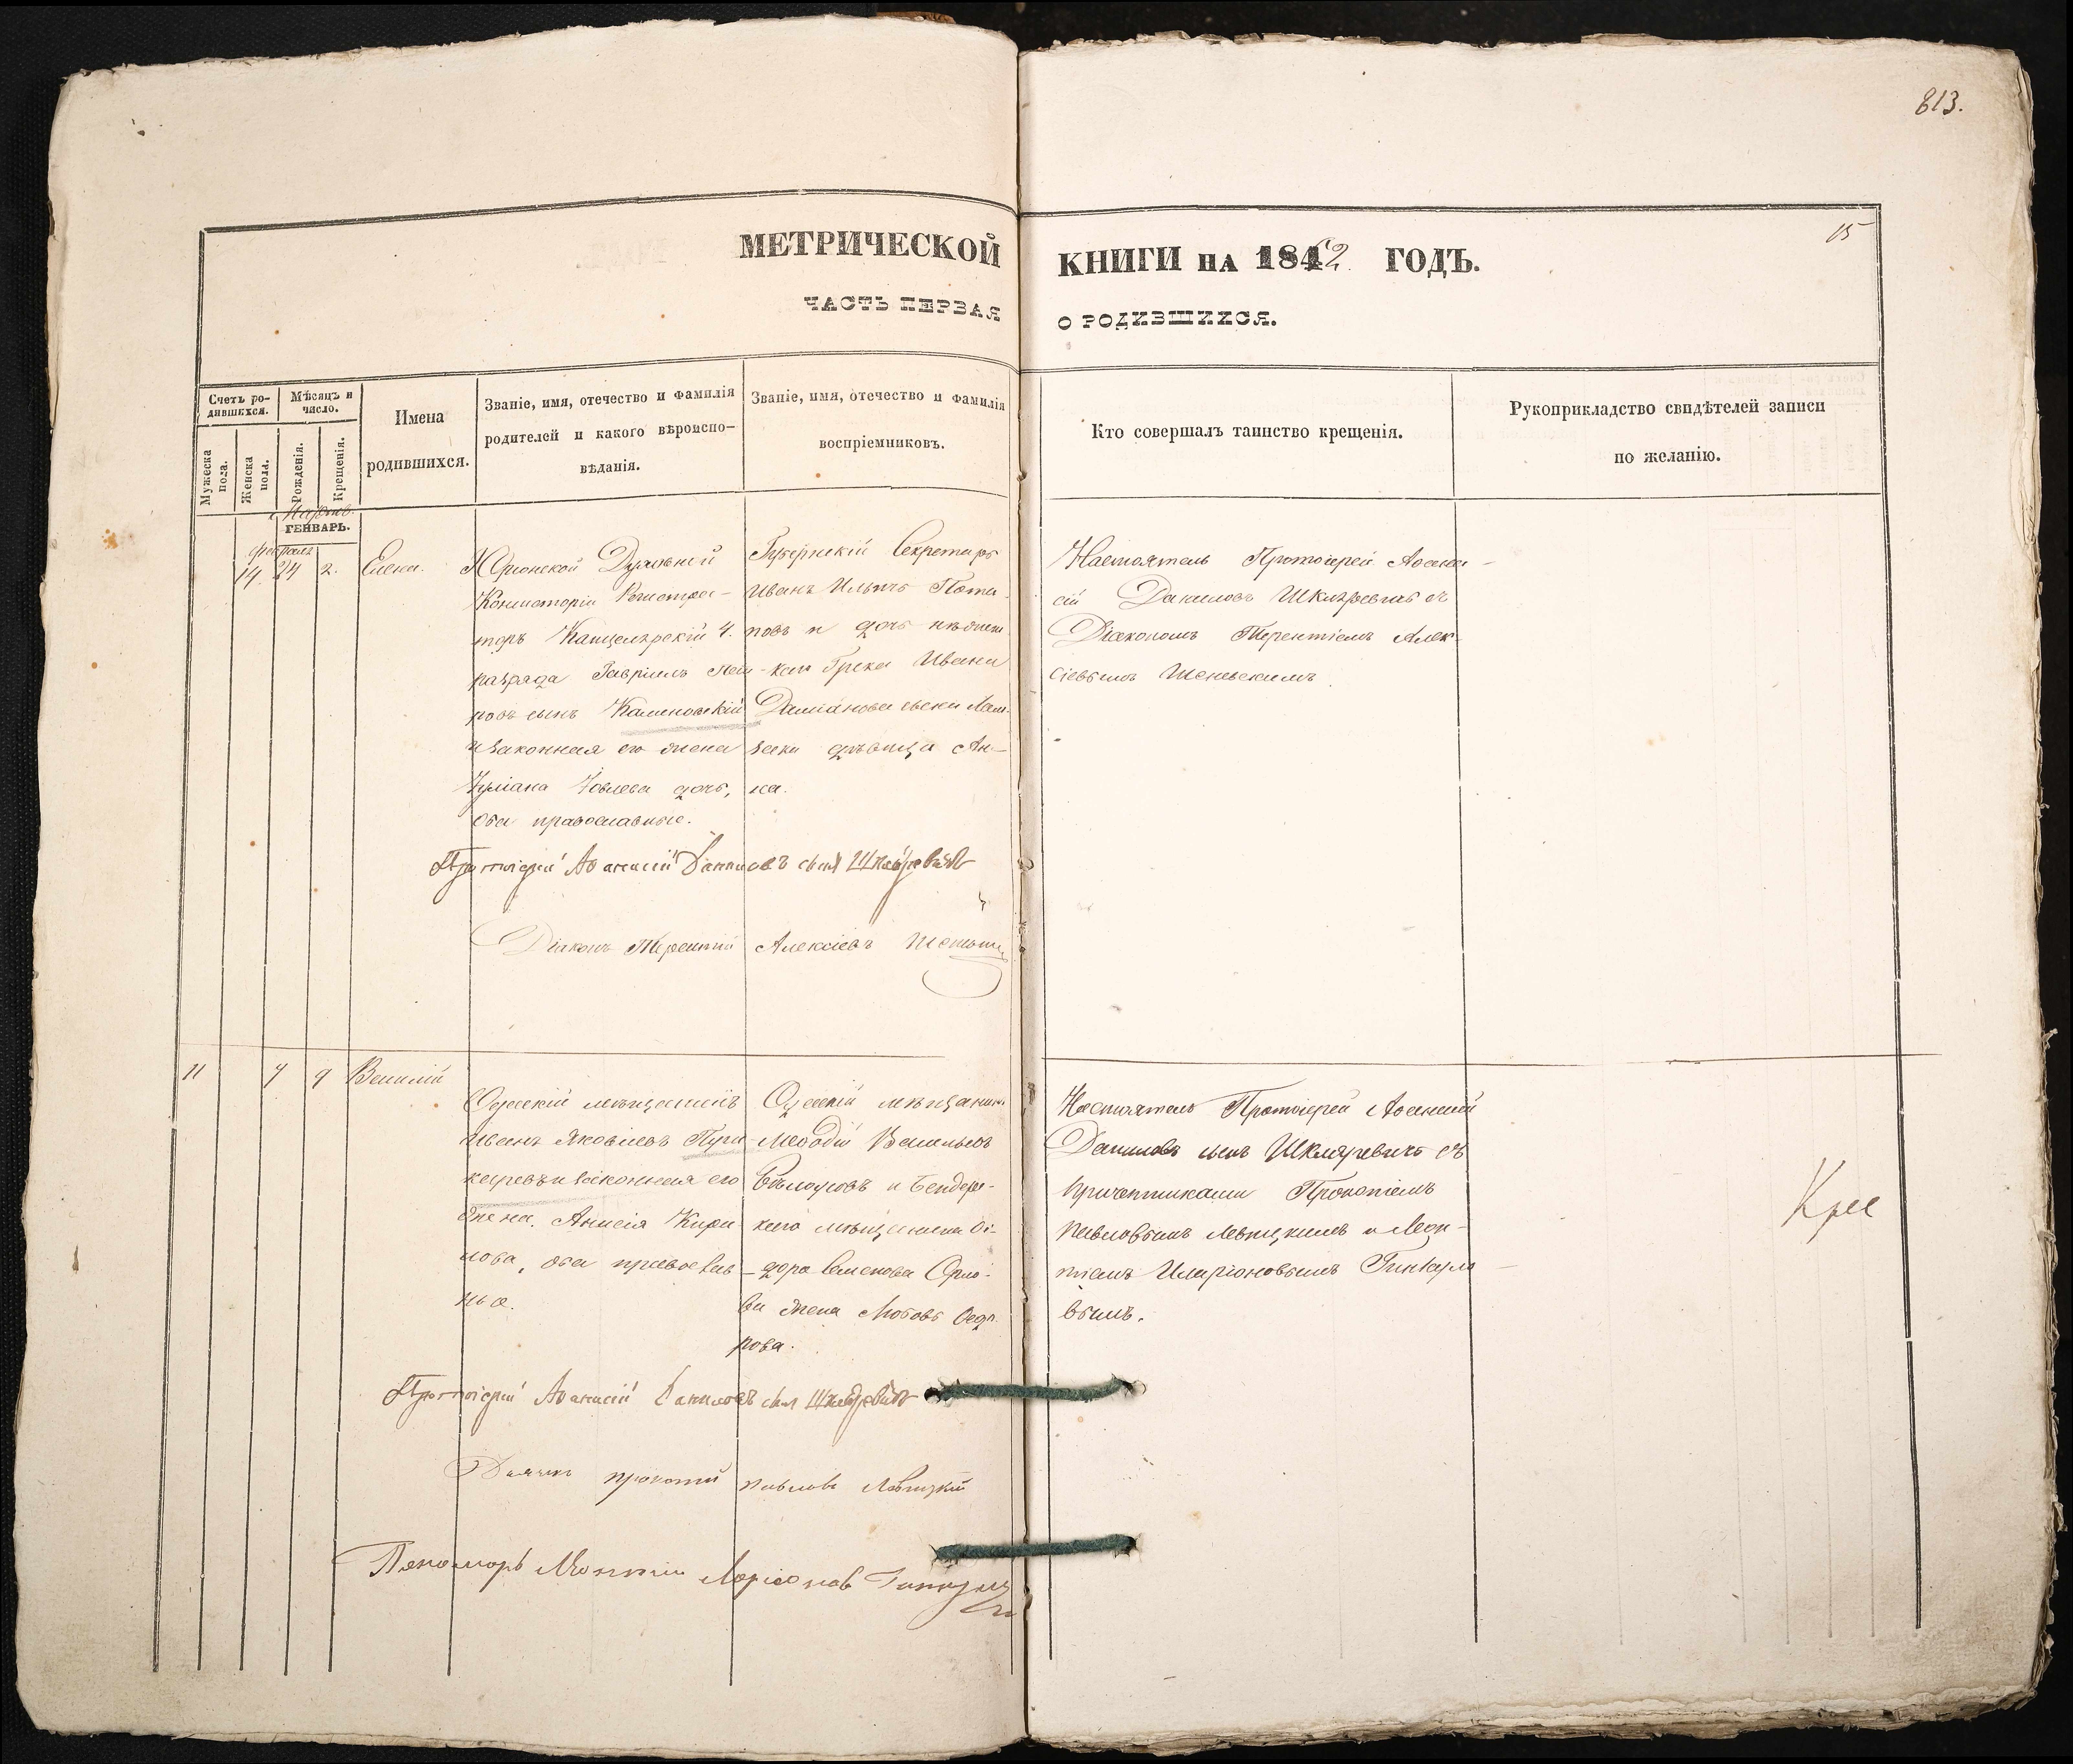 813.
15
МЕТРИЧЕСКОЙ КНИГИ на 1842 ГОДЪ.
ЧАСТЬ ПЕРВАЯ О РОДИВШИХСЯ.
Счетъ родившихся.
Мужеска пола.
Женска пола.
Мѣсяцъ и число.
Рожденія.
Крещенія.
Имена
родившихся.
Званіе, имя, отечество и фамилія
родителей и какого вѣроиспо-
вѣданія.
Званіе, имя, отечество и фамилія
воспріемниковъ.
Кто совершалъ таинство крещенія.
Рукоприкладство свидѣтелей записи
по желанію.
ГЕНВАРЬ.
Февраля
14. 24 2. Елена.
Духовной
Консисторіи Регистра-
торъ Канцелярскій 4.
разряда Гавріилъ
сынъ
и законная его жена
Іовлева дочь,
оба православные.
Губернскій Секретарь
Иванъ Ильичъ Пота-
повъ и дочь
Грека Ивана
дѣвица Ан-
на.
Настоятель Протоіерей Аѳана-
сій Даниловъ Шкляревичъ съ
Діакономъ Терентіемъ Алек-
сіевымъ
Протоіерей Аѳанасій Даниловъ сынъ Шкляревичъ
Діаконъ Терентій Алексіевъ
11 7 9 Василій
Одесскій мѣщанинъ
Иванъ Яковлевъ
и законная его
жена Анисія Кири-
лова, оба православ-
ные.
Одесскій мѣщанинъ
Меѳодій Васильевъ
Бѣлоусовъ и Бендер-
скаго мѣщанина Ѳе-
дора Семенова Орло-
ва жена Любовь Ѳедо-
рова.
Настоятель Протоіерей Аѳанасій
Даниловъ сынъ Шкляревичъ съ
причетниками Прокопіемъ
Павловымъ Левицкимъ и Леон-
тіемъ Иларіоновымъ Гинкуло-
вымъ.
Протоіерей Аѳанасій Даниловъ сынъ Шкляревичъ
Дьячекъ Прокопій Павловъ Левицкій
Пономарь Леонтій Ларіоновъ